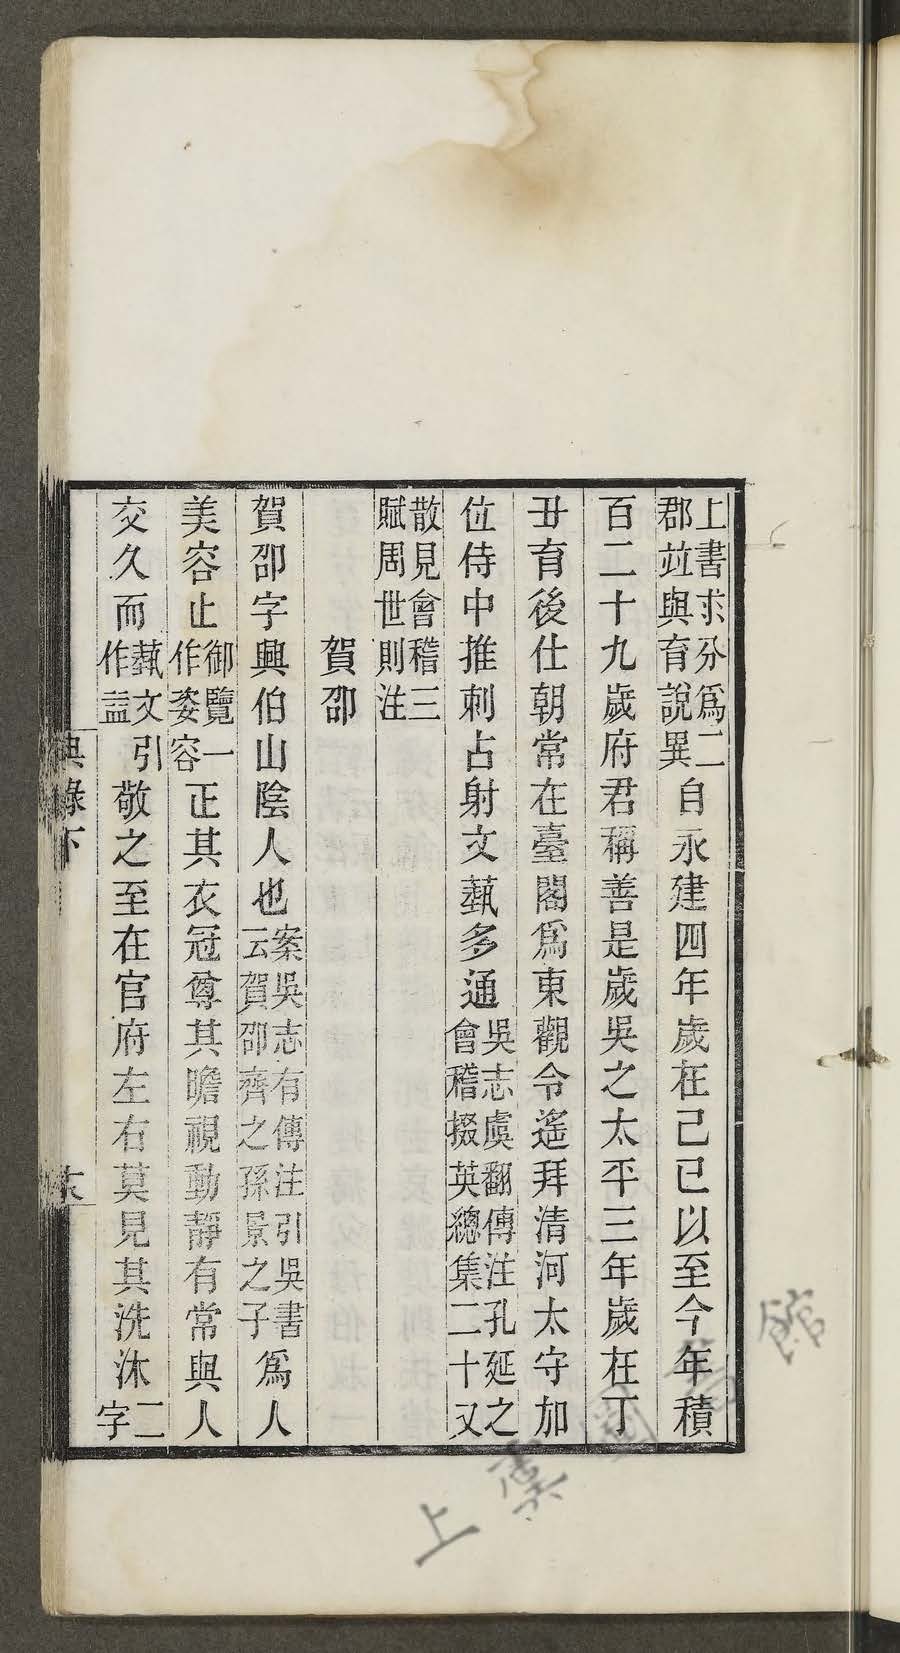 上書求分爲二郡竝與育說異自永建四年歲在己巳以至今年積
百二十九歲府君稱善是歲吳之太平三年歲在丁
丑育後仕朝常在臺閣爲東觀令遙拜清河太守加
位侍中推刺占射文藝多通吳志虞翻傳注孔延之會稽掇英總集二十又
散見會稽三賦周世則注
賀卲
賀卲字興伯山陰人也案吳志有傳注引吳書云賀卲齊之孫景之子爲人
美容止御覽一作姿容正其衣冠尊其瞻視動靜有常與人
交久而藝文引作益敬之至在官府左右莫見其洗沐二字
典錄下
上虞圖書館